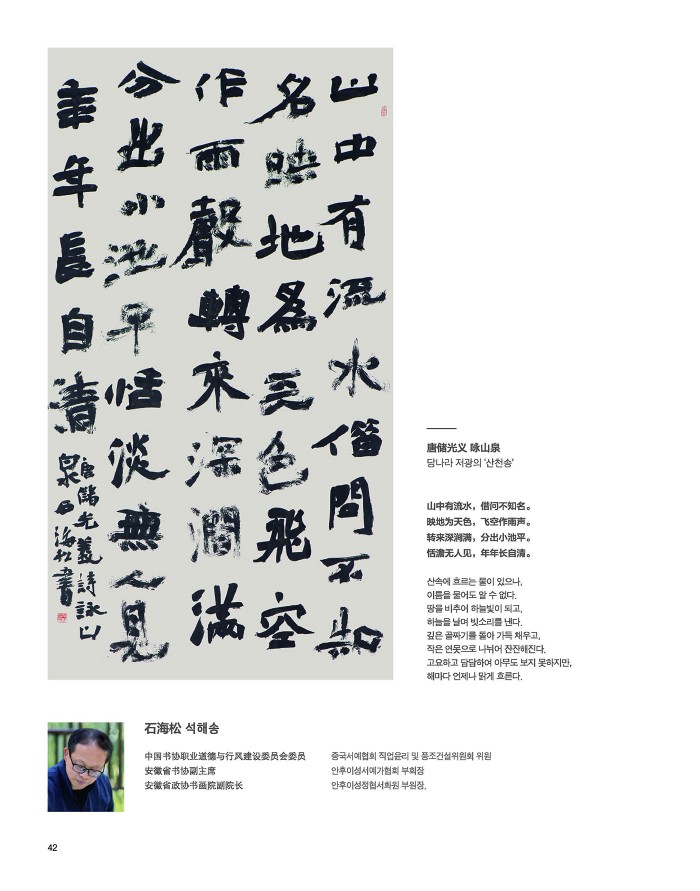 山中有流水借問不知
名映地為天色飛空
作雨聲轉來深澗滿
分出小池平恬淡無人見
年年長自清
唐儲光羲詩詠山
泉石海松書
唐储光义 咏山泉
당나라 저광의 '산천송'
山中有流水，借问不知名。
映地为天色，飞空作雨声。
转来深涧满，分出小池平。
恬澹无人见，年年长自清。
산속에 흐르는 물이 있으나,
이름을 물어도 알 수 없다.
땅을 비추어 하늘빛이 되고,
하늘을 날며 빗소리를 낸다.
깊은 골짜기를 돌아 가득 채우고,
작은 연못으로 나뉘어 잔잔해진다.
고요하고 담담하여 아무도 보지 못하지만,
해마다 언제나 맑게 흐른다.
石海松 석해송
中国书协职业道德与行风建设委员会委员
安徽省书协副主席
安徽省政协书画院副院长
중국서예협회 직업윤리 및 풍조건설위원회 위원
안후이성서예가협회 부회장
안후이성정협서화원 부원장.
42